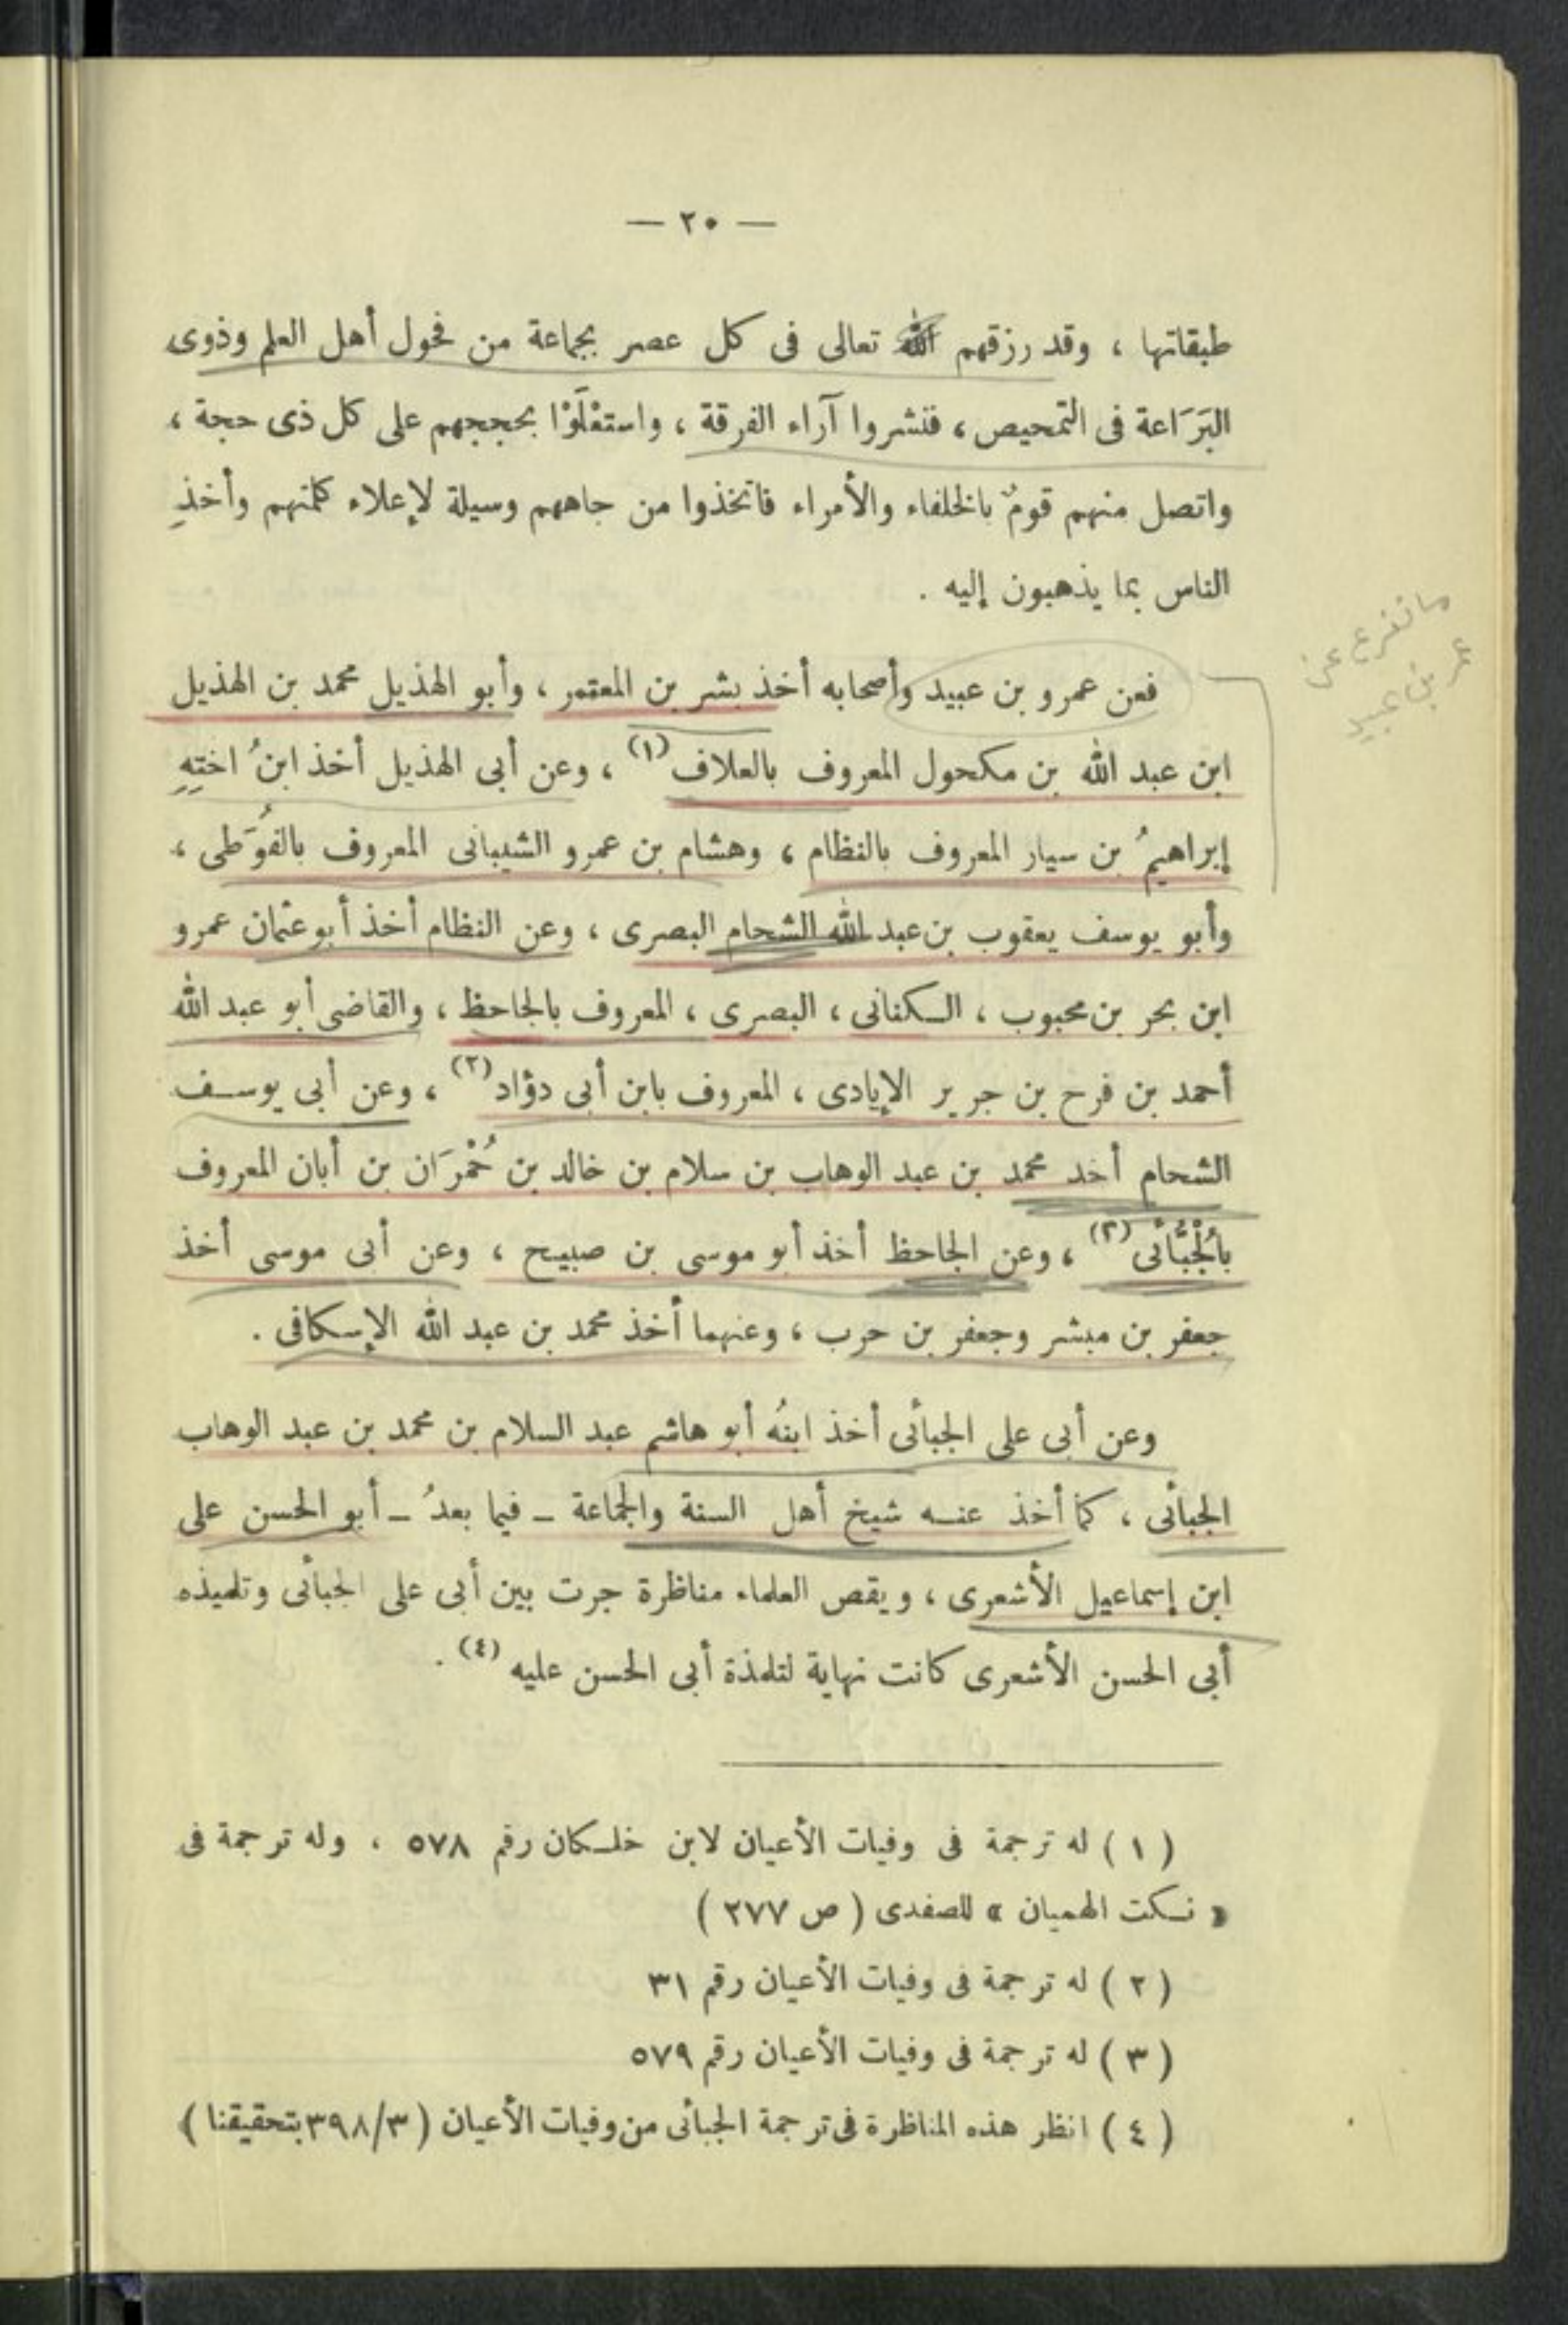 — ٢٠ —
طبقاتها ، وقد رزقهم الله تعالى فى كل عصر بجماعة من فحول أهل العلم وذوى
البَرَاعة فى التمحيص ، فنشروا آراء الفرقة ، واستعْلَوْا بحججهم على كل ذى حجة ،
واتصل منهم قومٌ بالخلفاء والأمراء فاتخذوا من جاههم وسيلة لإعلاء كلمتهم وأخذِ
الناس بما يذهبون إليه .
ما تفرع عن
عمر بن عبيد
فعن عمرو بن عبيد وأصحابه أخذ بشر بن المعتمر ، وأبو الهذيل محمد بن الهذيل
ابن عبد الله بن مكحول المعروف بالعلاف (١) ، وعن أبى الهذيل أخذ ابنُ اختِهِ
إبراهيمُ بن سيار المعروف بالنظام ، وهشام بن عمرو الشيبانى المعروف بالفُوَطى ،
وأبو يوسف يعقوب بن عبد الله الشحام البصرى ، وعن النظام أخذ أبو عثمان عمرو
ابن بحر بن محبوب ، الكنانى ، البصرى ، المعروف بالجاحظ ، والقاضى أبو عبد الله
أحمد بن فرح بن جرير الإيادى ، المعروف بابن أبى دؤاد (٢) ، وعن أبى يوسف
الشحام أخد محمد بن عبد الوهاب بن سلام بن خالد بن حُمْرَان بن أبان المعروف
بالُجْبَّائى (٣) ، وعن الجاحظ أخذ أبو موسى بن صبيح ، وعن أبى موسى أخذ
جعفر بن مبشر وجعفر بن حرب ، وعنهما أخذ محمد بن عبد الله الإسكافى .
وعن أبى على الجبائى أخذ ابنُه أبو هاشم عبد السلام بن محمد بن عبد الوهاب
الجبائى ، كما أخذ عنه شيخ أهل السنة والجماعة – فيما بعدُ – أبو الحسن على
ابن إسماعيل الأشعرى ، ويقص العلماء مناظرة جرت بين أبى على الجبائى وتلميذه
أبى الحسن الأشعرى كانت نهاية لتلمذة أبى الحسن عليه (٤) .
( ١ ) له ترجمة فى وفيات الأعيان لابن خلكان رقم ٥٧٨ ، وله ترجمة فى
« نكت الهميان » للصفدى ( ص ٢٧٧ )
( ٢ ) له ترجمة فى وفيات الأعيان رقم ٣١
( ٣ ) له ترجمة فى وفيات الأعيان رقم ٥٧٩
( ٤ ) انظر هذه المناظرة فى ترجمة الجبائى من وفيات الأعيان ( ٣/ ٣٩٨ بتحقيقنا )